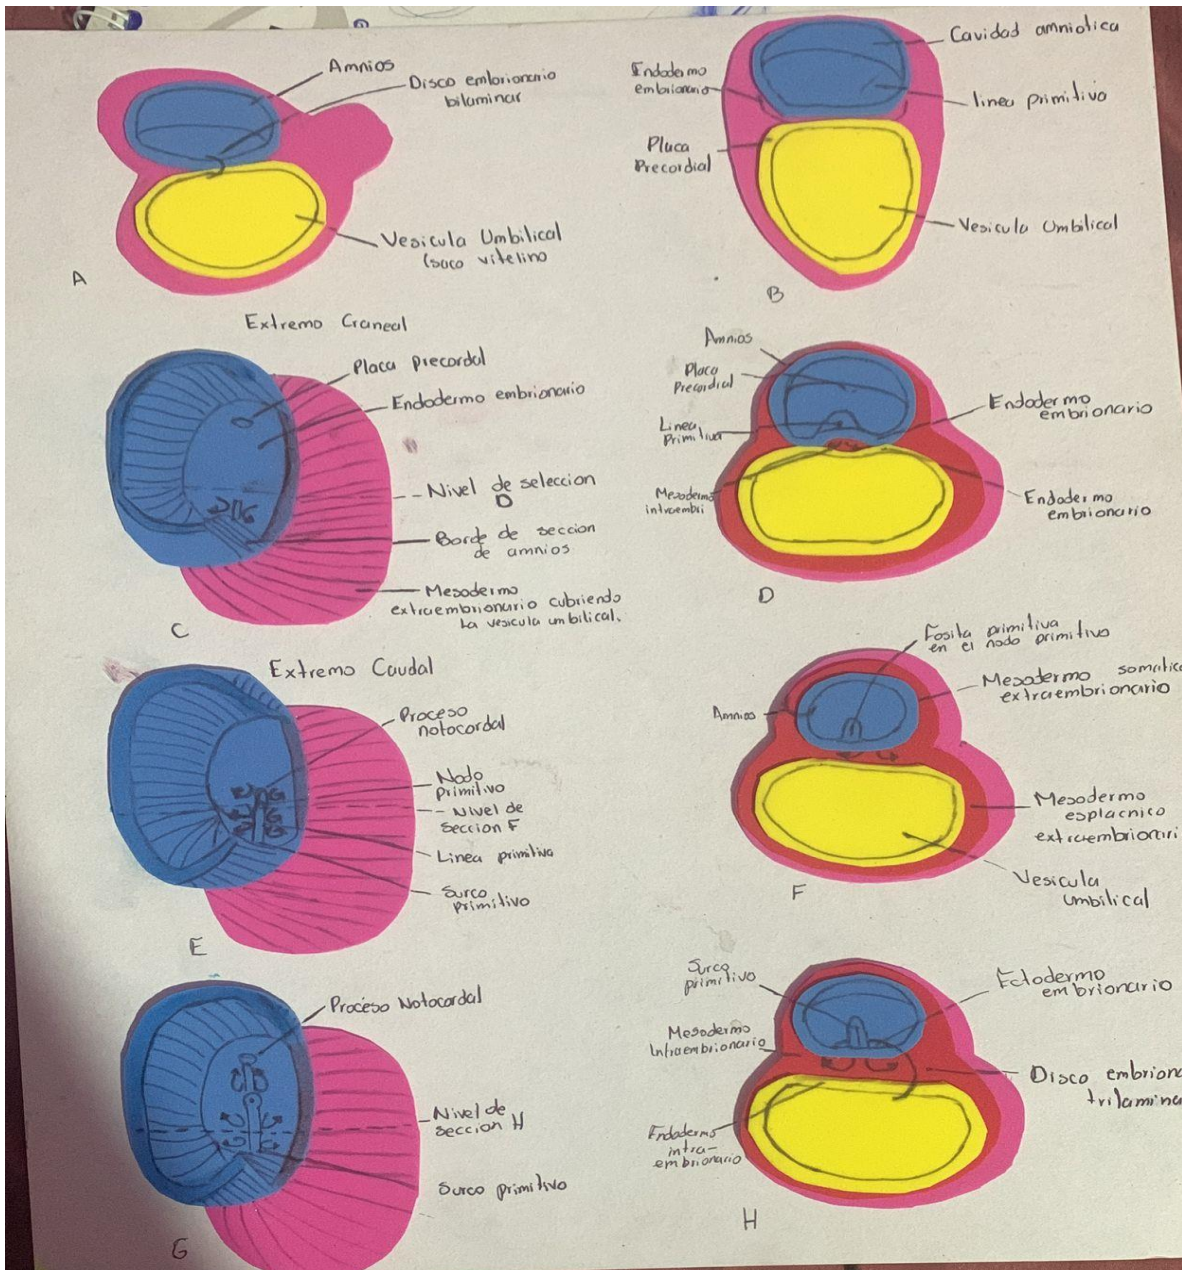 Amnios
Disco embrionario
bilaminar
Vesicula Umbilical
(saco vitelino
A
Cavidad amniotica
Endodermo
embrionario
linea primitiva
Placa
Precordial
Vesicula Umbilical
B
Extremo Craneal
Placa precordal
Endodermo embrionario
Nivel de seleccion
D
Borde de seccion
de amnios
Mesodermo
extraembrionario cubriendo
la vesicula umbilical.
C
Amnios
Placa
Precordial
Linea
Primitiva
Endodermo
embrionario
Mesodermo
intraembri
Endodermo
embrionario
D
Extremo Caudal
Proceso
notocordal
Nodo
primitivo
Nivel de
seccion F
Linea primitiva
Surco
primitivo
E
Fosita primitiva
en el nodo primitivo
Mesodermo somatico
extraembrionario
Amnios
Mesodermo
esplacnico
extraembrionari
Vesicula
umbilical
F
Proceso Notocordal
Nivel de
seccion H
Surco primitivo
G
Surco
primitivo
Ectodermo
embrionario
Mesodermo
Intraembrionario
Disco embriona
trilamina
Endodermo
intra-
embrionario
H